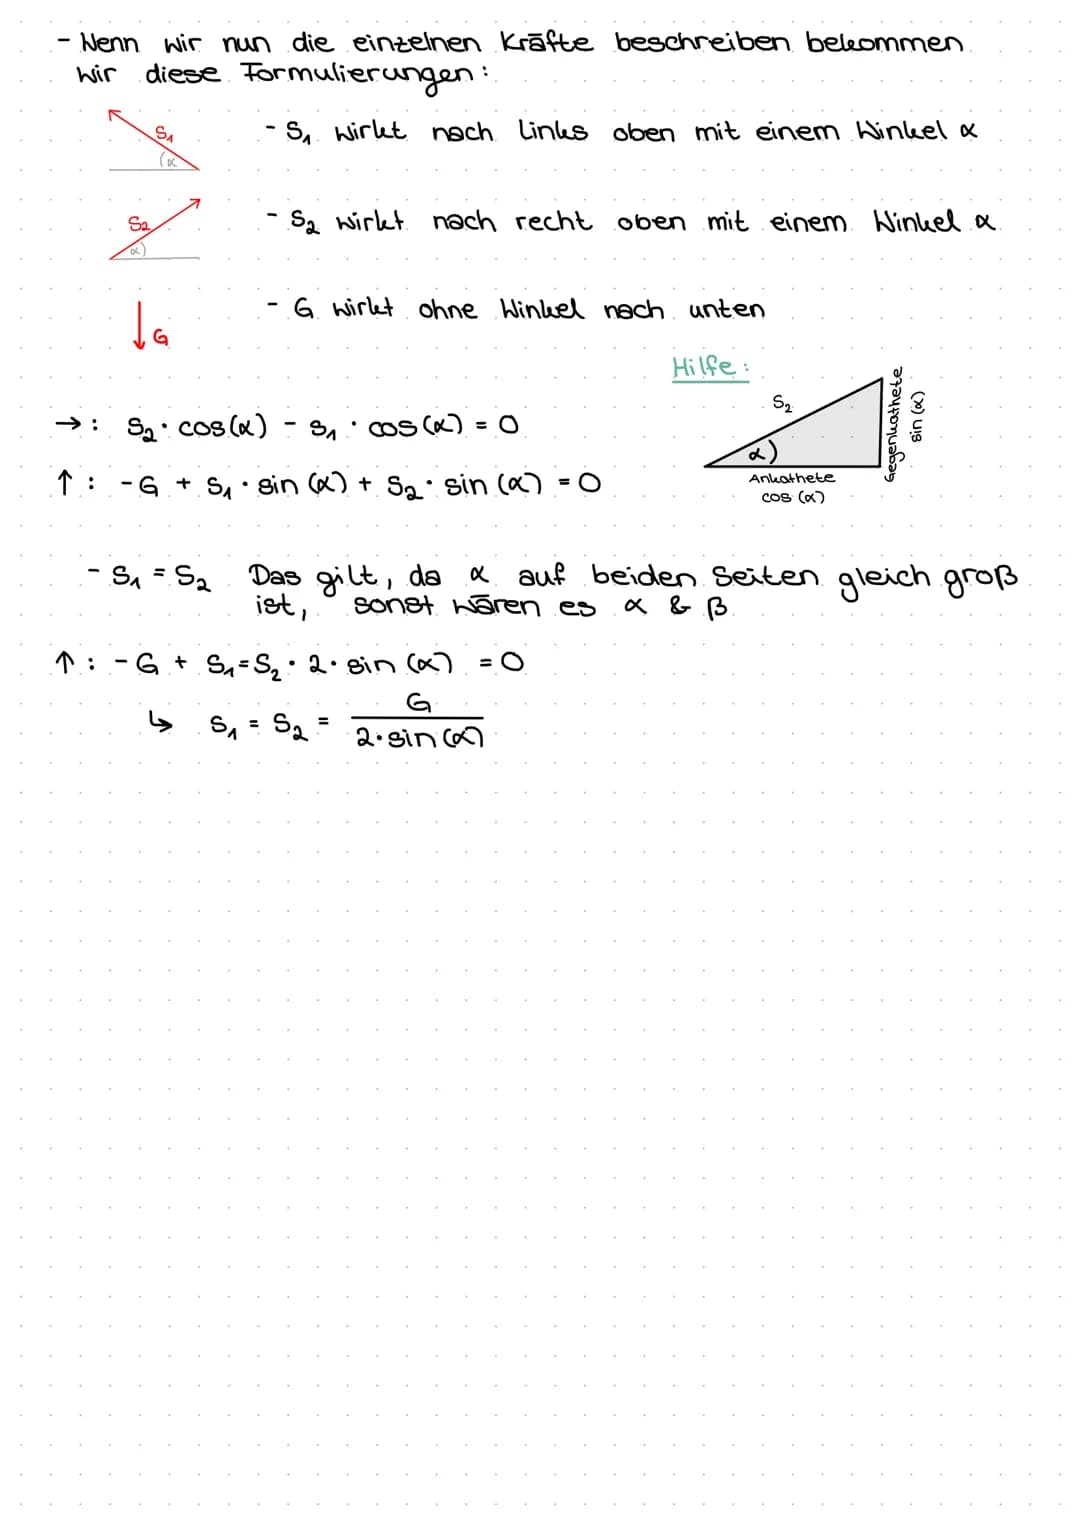 - Wenn wir nun die einzelnen Kräfte beschreiben bekommen
wir diese Formulierungen:
S₁
(α
- S₁ wirkt nach Links oben mit einem Winkel α
S₂
α)
- S₂ wirkt nach recht oben mit einem Winkel α
G
- G wirkt ohne Winkel nach unten
Hilfe:
S₂
α)
Gegenkathete
sin (α)
Ankathete
cos (α)
→: S₂ · cos(α) - S₁ · cos(α) = 0
↑: -G + S₁ · sin (α) + S₂ · sin (α) = 0
- S₁ = S₂ Das gilt, da α auf beiden Seiten gleich groß
ist, sonst wären es α & β
↑: -G + S₁=S₂ · 2 · sin (α) = 0
↳ S₁ = S₂ = G
2·sin(α)